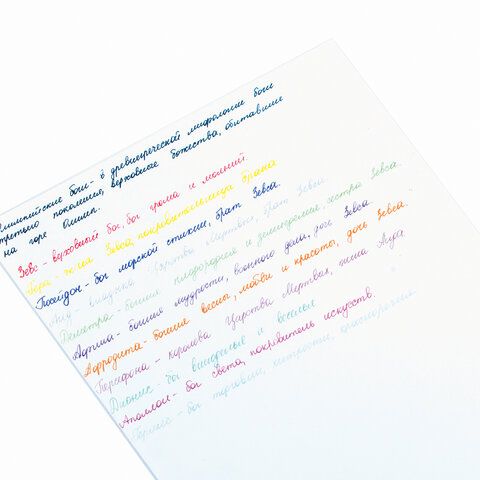 Олимпийские боги - в древнегреческой мифологии боги
третьего поколения, верховные божества, обитавшие
на горе Олимп.
Зевс - верховный бог, бог грома и молний.
Гера - жена Зевса, покровительница брака
Посейдон - бог морской стихии, брат Зевса.
Аид - владыка Царства Мертвых, брат Зевса
Деметра - богиня плодородия и земледелия, сестра Зевса.
Афина - богиня мудрости, военного дела, дочь Зевса
Афродита - богиня весны, любви и красоты, дочь Зевса.
Персефона - королева Царства Мертвых, жена Аида.
Дионис - бог виноделия и веселья
Аполлон - бог света, покровитель искусств.
Гермес - бог торговли, хитрости, красноречия